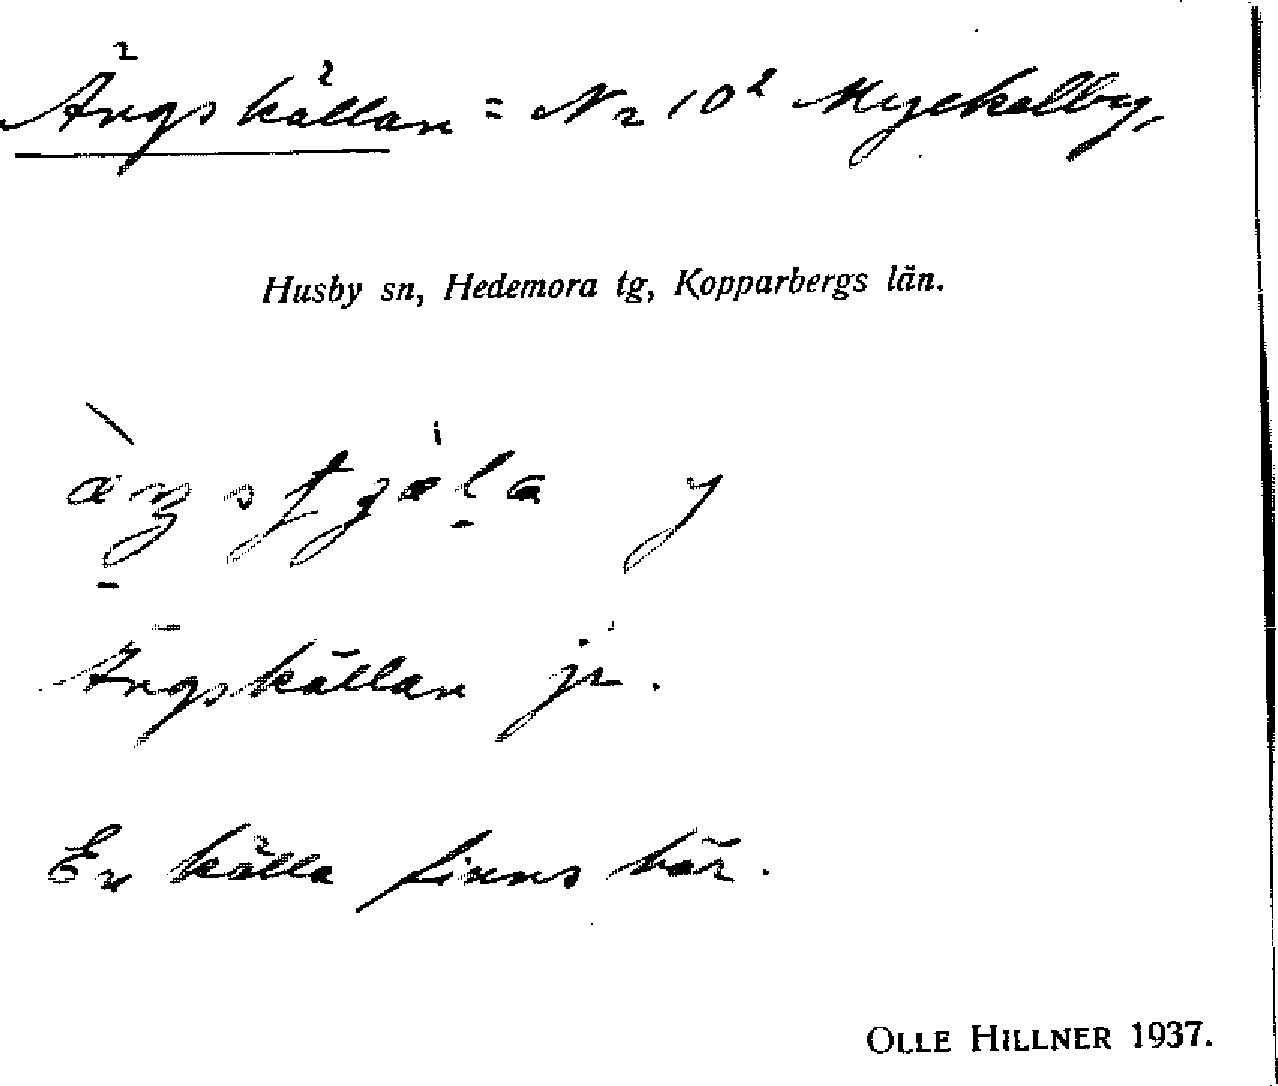 Ängskällan = Nr 10² Myckelby,
Husby sn, Hedemora tg, Kopparbergs län.
Ängskällan jr.
En källa finns här.
OLLE HILLNER 1937.